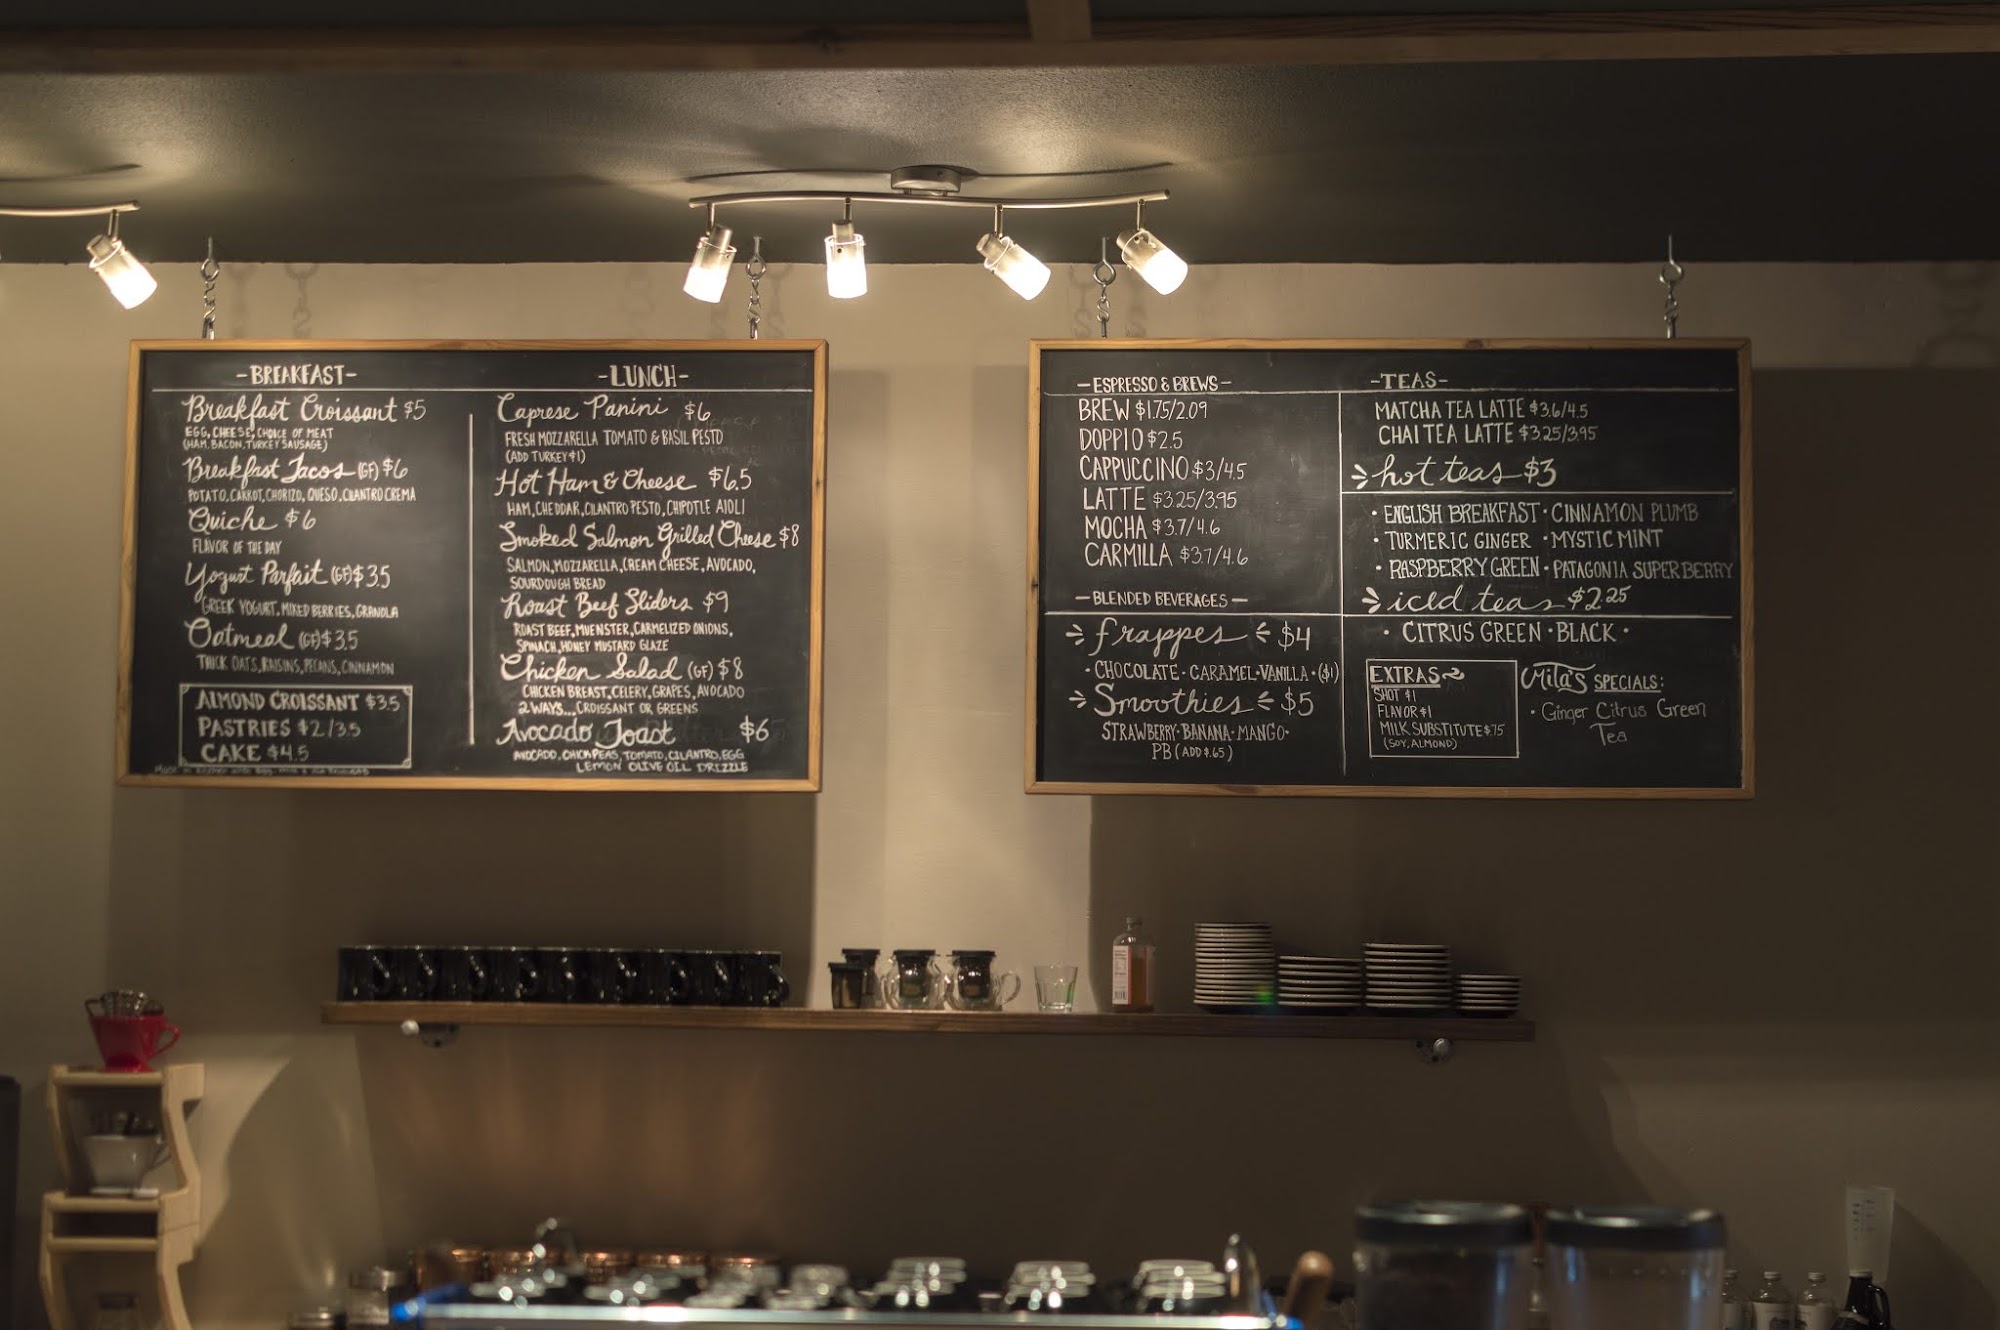 -BREAKFAST-
Breakfast Croissant $5
EGG, CHEESE, CHOICE OF MEAT
(HAM, BACON, TURKEY SAUSAGE)
Breakfast Tacos (GF) $6
POTATO, CARROT, CHORIZO, QUESO, CILANTRO CREMA
Quiche $6
FLAVOR OF THE DAY
Yogurt Parfait (GF) $35
GREEK YOGURT, MIXED BERRIES, GRANOLA
Oatmeal (GF) $3.5
THICK OATS, RAISINS, PECANS, CINNAMON
ALMOND CROISSANT $3.5
PASTRIES $2/3.5
CAKE $4.5
-LUNCH-
Caprese Panini $6
FRESH MOZZARELLA TOMATO & BASIL PESTO
(ADD TURKEY $1)
Hot Ham & Cheese $6.5
HAM, CHEDDAR, CILANTRO PESTO, CHIPOTLE AIOLI
Smoked Salmon Grilled Cheese $8
SALMON, MOZZARELLA, CREAM CHEESE, AVOCADO,
SOURDOUGH BREAD
Roast Beef Sliders $9
ROAST BEEF, MUENSTER, CARMELIZED ONIONS,
SPINACH, HONEY MUSTARD GLAZE
Chicken Salad (GF) $8
CHICKEN BREAST, CELERY, GRAPES, AVOCADO
2 WAYS... CROISSANT OR GREENS
Avocado Toast $6
AVOCADO, CHICKPEAS, TOMATO, CILANTRO, EGG
LEMON OLIVE OIL DRIZZLE
-ESPRESSO & BREWS-
BREW $1.75/2.09
DOPPIO $2.5
CAPPUCCINO $3/4.5
LATTE $3.25/3.95
MOCHA $3.7/4.6
CARMILLA $3.7/4.6
-BLENDED BEVERAGES-
frappes $4
• CHOCOLATE • CARAMEL • VANILLA • ($1)
Smoothies $5
STRAWBERRY • BANANA • MANGO •
PB (ADD $.65)
-TEAS-
MATCHA TEA LATTE $3.6/4.5
CHAI TEA LATTE $3.25/3.95
hot teas $3
• ENGLISH BREAKFAST • CINNAMON PLUMB
• TURMERIC GINGER • MYSTIC MINT
• RASPBERRY GREEN • PATAGONIA SUPER BERRY
iced teas $2.25
• CITRUS GREEN • BLACK •
EXTRAS
SHOT $1
FLAVOR $1
MILK SUBSTITUTE $.75
(SOY, ALMOND)
Mila's SPECIALS:
• Ginger Citrus Green
Tea